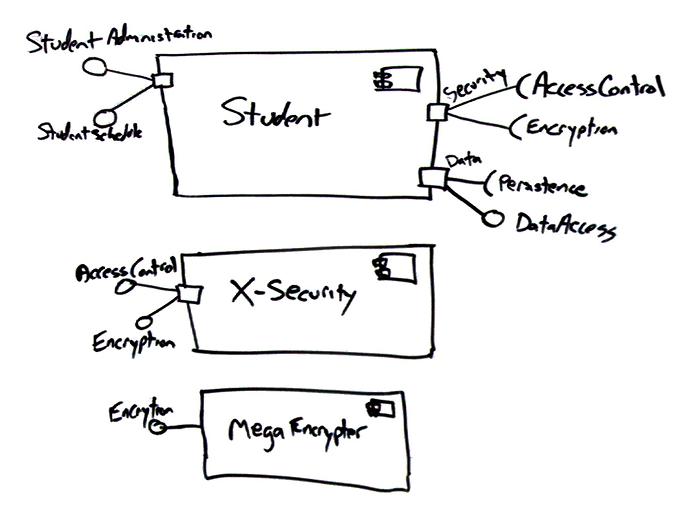 Student Administration
Student
StudentSchedule
Security
AccessControl
Encryption
Data
Persistence
DataAccess
AccessControl
X-Security
Encryption
Encrytion
Mega Encrypter